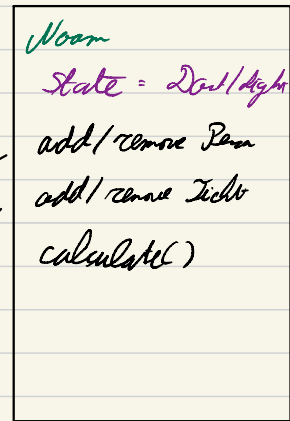 Noam
State = Dark/light
add/remove Person
add/remove Ticket
calculate()